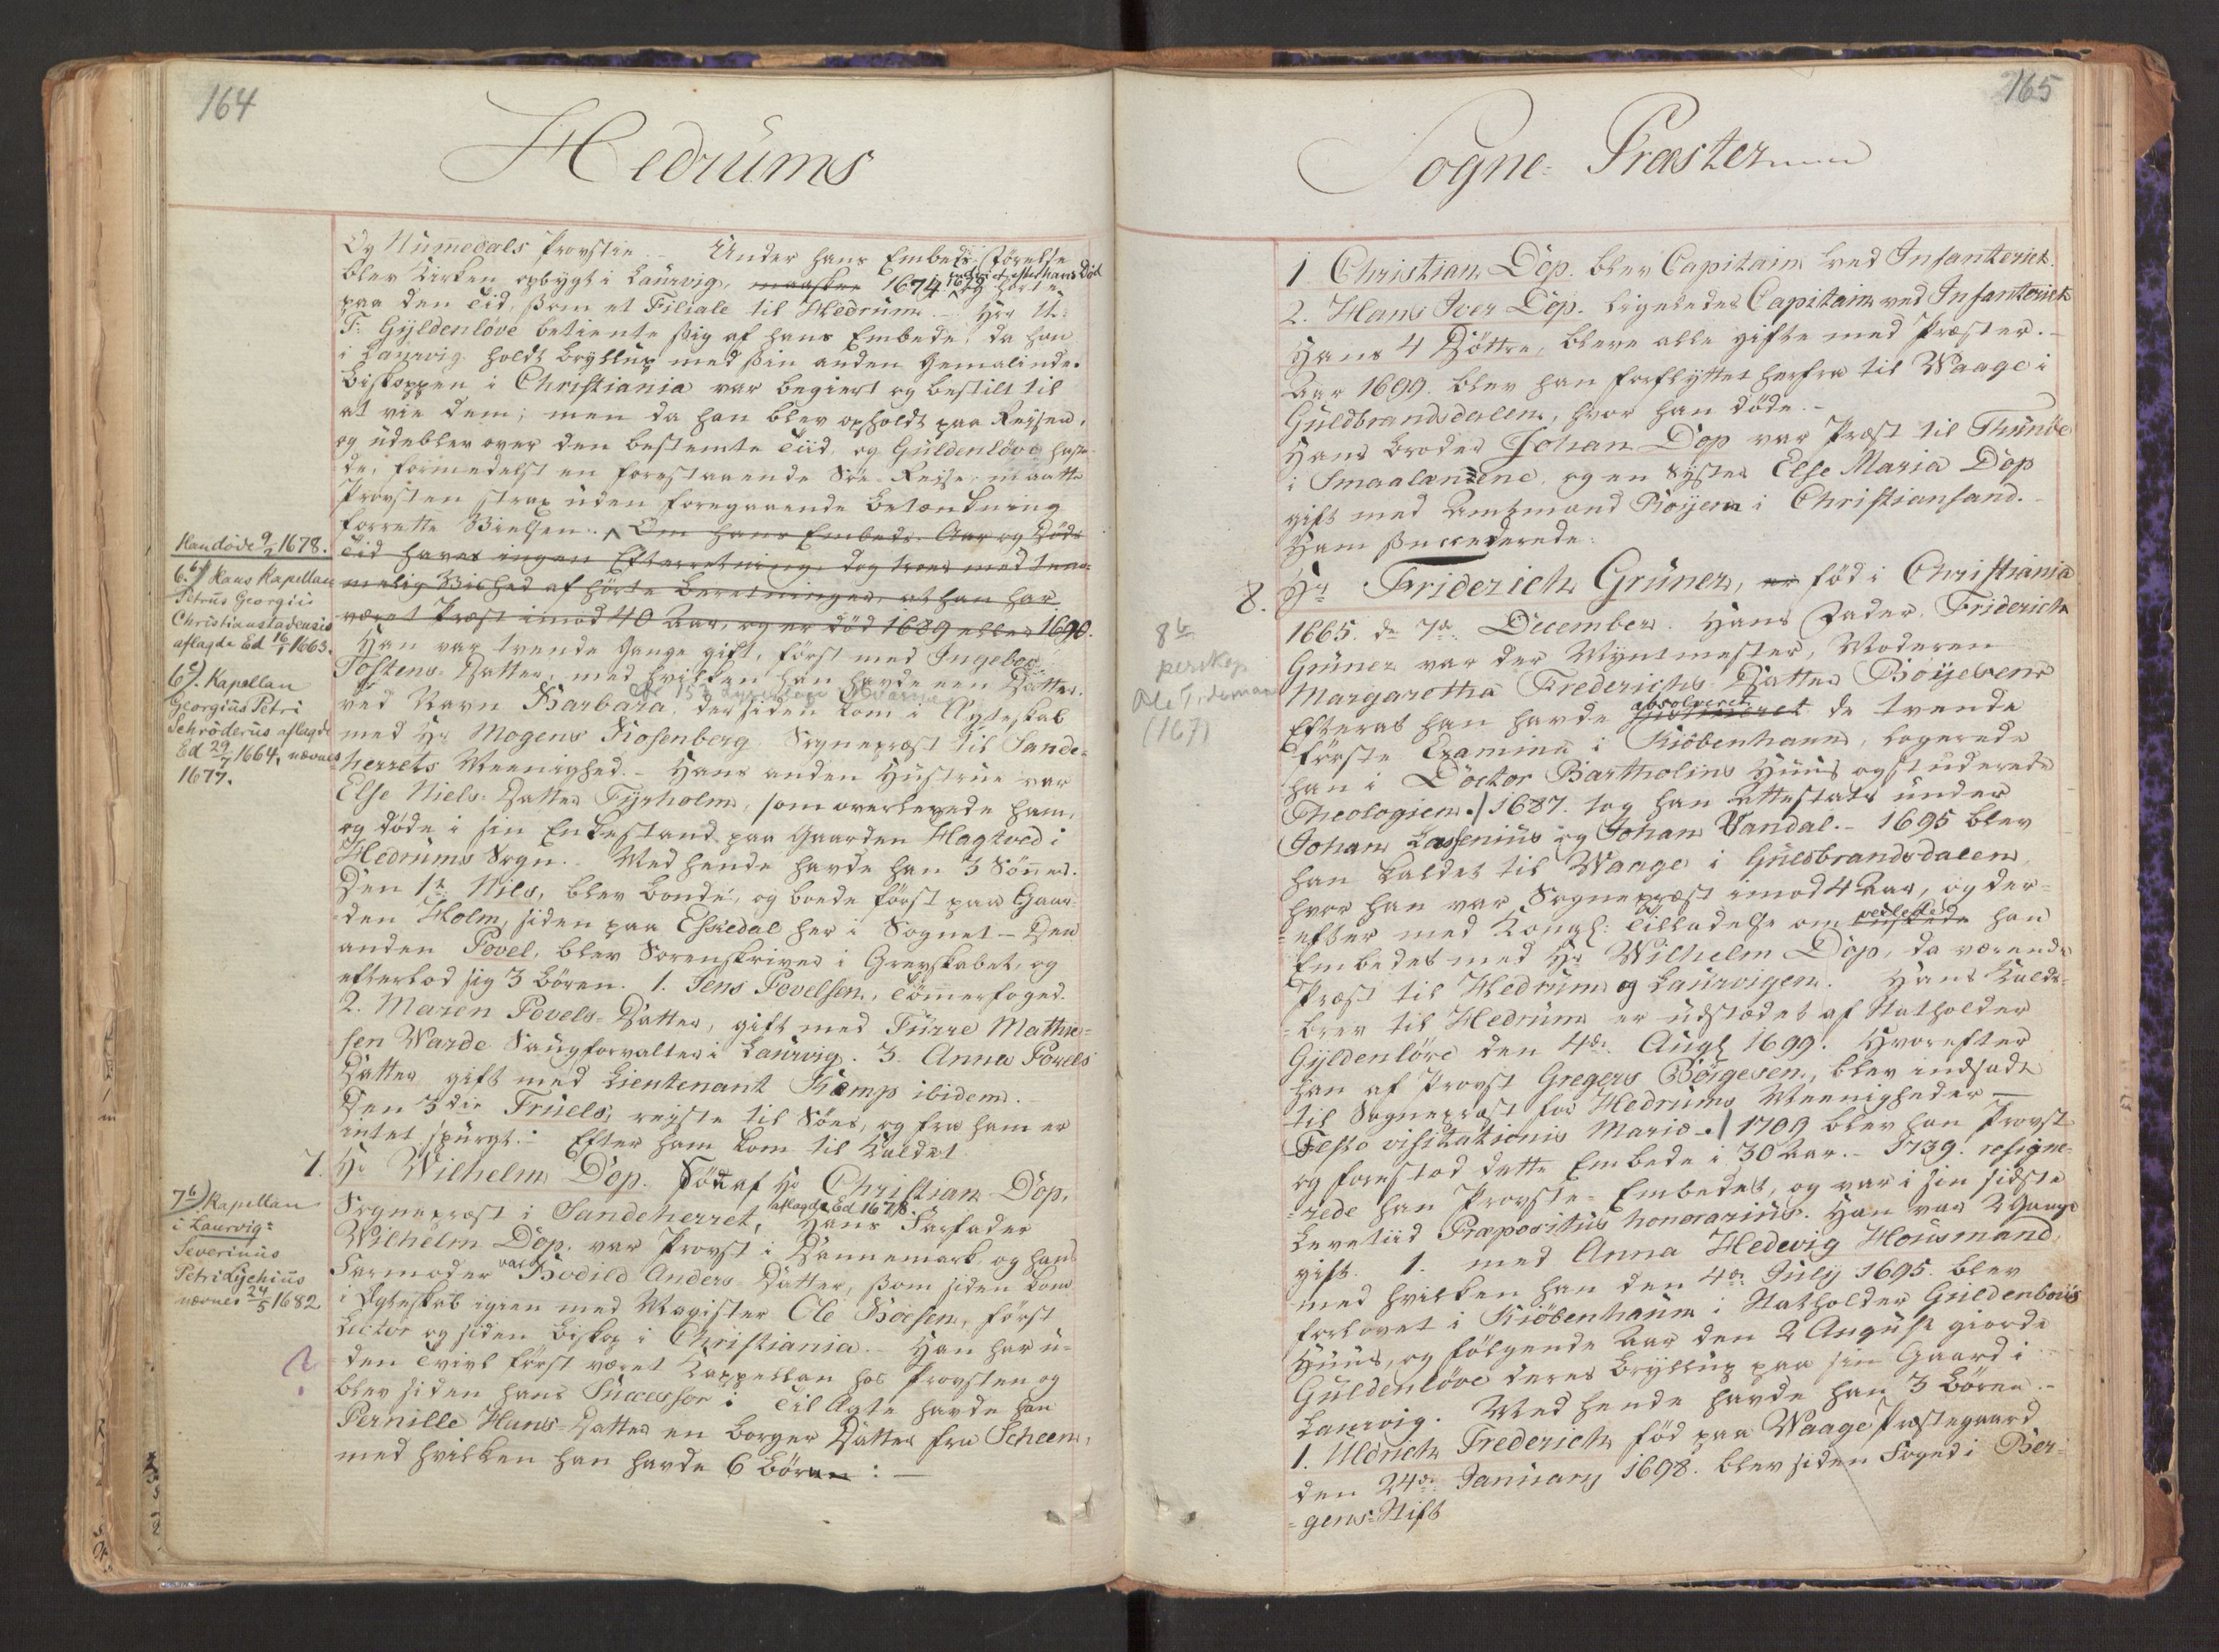 164
Hedrums
Og Numedals Provstie. - Under hans Embeds Förelse
blev Kirken opbygt i Laurvig, maaskee 1674. og hörte
1679 indviet efter hans Död
paa den Tid, som et Filiale til Hedrum. - Herr U:
F: Gyldenlöve betiente sig af hans Embede, da han
i Laurvig holdt Bryllup med sin anden Gemalinde.
Biskoppen i Christiania var begiert og bestilt til
at vie dem; men da han blev opholdt paa Reysen,
og udeblev over den bestemte Tiid, og Güldenlöve haste-
de, formedelst en forestaaende Söe-Reise, maatte
Provsten strax uden foregaaende Betænkning
forrette Vielsen. Om hans Embeds-Aar og Döds
Tid haves ingen Efterretning, dog troes med tem-
melig Vished af hörte Beretninger, at han har
været Præst imod 40 Aar, og er död 1689 eller 1690.
Han var tvende Gange gift, först med Ingebor
Tostens Datter, med hvilken han havde een Datter
ved Navn Barbara, der siden kom i Ægteskab
med Hr Mogens Rosenberg Sognepræst til Sande-
herrets Meenighed. - Hans anden Hustrue var
Else Niels-Datter Fyrholm, som overlevede ham,
og döde i sin Enkestand paa Gaarden Hagtved i
Hedrums Sogn. - Med hende havde han 3 Sönner.
Den 1te Nils, blev Bonde, og boede först paa Gaar-
den Holm, siden paa Eskedal her i Sognet - Den
anden Povel, blev Sorenskriver i Grevskabet, og
efterlod sig 3 Börn. 1. Jens Povelsen, Tömerfoged.
2. Maren Povels-Datter, gift med Türre Mathie-
sen Warde Saugforvalter i Laurvig. 3. Anna Povels
Datter gift med Lieutenant Kamp ibidem. -
Den 3die Truels, reyste til Söes, og fra ham er
intet spurgt. - Efter ham kom til Kaldet
7. Hr Wilhelm Dop. Föd af Hr Christian Dop,
Sognepræst i Sandeherret, Hans Farfader
aflagde Ed 1678.
Wilhelm Dop. var Provst i Dannemark, og hans
Farmoder var Bodild Anders-Datter, som siden kom
i Ægteskab igien med Magister Ole Boesen, först
Lector og siden Biskop i Christiania. - Han har u-
den Tvivl först været Kappellan hos Provsten og
blev siden hans Successor i Til Ægte havde han
Pernille Hans-Datter en Borger Datter fra Scheen,
med hvilken han havde 6 Börn : -
Han döde 9/2 1678.
6.b) Hans Kapellan
Petrus Georgii
Christianstadensis
aflagde Ed 16/1 1663.
6c). Kapellan
Georgius Petri
Schröderus aflagde
Ed 29/7 1664, nævnes
1677.
7b) Kapellan
i Laurvig:
Severinus
Petri Lychius
nævnes 24/5 1682
?
165
Sogne-Præster
1. Christian Dop. blev Capitain ved Infanteriet.
2. Hans Iver Dop. ligeledes Capitain ved Infanteriet
Hans 4 Döttre, bleve alle gifte med Præster. -
Aar 1699. blev han forflyttet herfra til Waage i
Guldbrandsdalen, hvor han döde. -
Hans Broder Johan Dop var Præst til Thunöe
i Smaalanene, og en Syster Else Maria Dop
gift med Amtmand Röyem i Christiansand. -
Ham succederede:
8. Hr Friderich Grüner, er föd i Christiania
1665. d. 7de December. Hans Fader, Friderich
Grüner var der Myntmester, Moderen
Margaretha Frederichs Datter Böyesens
Efterat han havde absolveret de tvende
förste Examina i Kiöbenhavn, logerede
han i Doctor Bartholins Huus og studerede
Theologien. / 1687. tog han Attestats under
Johan Lassenius og Johan Vandal. - 1695 blev
han kaldet til Waage i Guldbrandsdalen,
hvor han var Sognepræst imod 4 Aar, og der-
efter med Kongl: Tilladelse om vexlede han
Embedet med Hr Wilhelm Dop, da værende
Præst til Hedrum og Laurvigen. Hans Kalds-
brev til Hedrum er udstædet af Statholder
Gyldenlöve den 4de Augs 1699. Hvorefter
han af Provst Gregers Börgesen, blev indsadt
til Sognepræst for Hedrums Meenigheder -
Festo visitationis Mariæ. / 1709 blev han Provst
og forestod dette Embede i 30 Aar. - 1739. resigne-
rede han Provste-Embedet, og var i sin sidste
Levetiid Præpositus honorarius. Han var 2 Gange
gift. 1. med Anna Hedevig Housmand,
med hvilken han den 4de July 1695. blev
forlovet i Kiöbenhaun i Statholder Güldenlövs
Huus, og fölgende Aar den 2 August giorde
Guldenlöve deres Bryllup paa sin Gaard i
Laurvig. Med hende havde han 3 Börn. -
1. Uldrich Frederich föd paa Waage Præstegaard
den 24de January 1698. blev siden Foged i Ber-
gens-Stift
8b
perskap
Ole Tideman
(167)